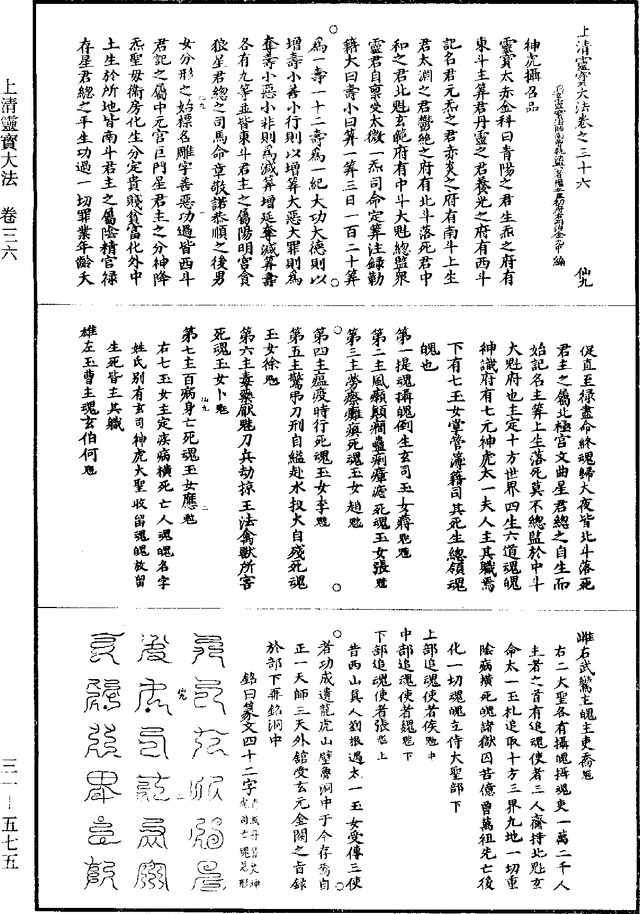 上清靈寶大法卷之三十六 仙九
神虎攝召品
靈寶太赤金科曰青陽之君生炁之府有
東斗主筭君丹靈之君養光之府有西斗
記名君元炁之君赤炎之府有南斗上生
君太淵之君鬱絕之府有北斗落死君中
和之君北魁玄範府有中斗大魁總監衆
靈君自稟受太微一炁司命定筭注録勒
籍大曰壽小曰筭一筭三日一百二十筭
為一壽一十二壽為一紀大功大德則以
增壽小善小行則以增筭大惡大罪則為
奪壽小惡小非則為減筭增延奪減筭壽
各有九等並皆東斗君主之屬陽明宮貪
狼星君總之司馬命章敬諾恭順之後男
女分形之始標名雕字善惡功過皆西斗
君記之屬中元宮巨門星君主之分神降
炁聖母衛房化生分定貴賤貧富化外中
土生於所地皆南斗君主之屬陰精宮禄
存星君總之平生功過一切罪業年齡夭
促直至禄盡命終魂歸大夜皆北斗落死
君主之屬北極宮文曲星君總之自生而
始記名主筭上生落死莫不總監於中斗
大魁府也主定十方世界四生六道魂魄
神識府有七元神虎太一夫人主其職焉
下有七玉女掌管簿籍司其死生總領魂
魄也
第一提魂攝魄倒生玄司玉女蔣
第二主風癲顛癇蠱痢瘴瘧死魂玉女張
第三主勞瘵癱瘓死魂玉女趙
第四主瘟疫時行死魂玉女李
第五主驚弔刀刑自縊赴水投火自殘死魂
玉女徐
第六主毒藥厭魅刀兵劫掠王法禽獸所害
死魂玉女卜
第七主百病身亡死魂玉女應
右七玉女主定疾病橫死亡人魂魄名字
姓氏別有玄司神虎大聖收留魂魄放留
生死皆主其職
雄左玉曹主魂玄伯何
雌右武鸞主魄主吏喬
右二大聖各有攝魄攝魂吏一萬二千人
主者之首有追魂使者三人齎持北魁玄
命太一玉札追取十方三界九地一切重
陰病橫死魄諸獄囚苦億曾萬祖先亡後
化一切魂魄立侍大聖部下
上部追魂使者侯
中部追魂使者魏
下部追魂使者張
昔西山真人劉根遇太一玉女受傳三使
者功成遺龍虎山壁魯洞中于今存焉自
正一天師三天外舘受玄元金闕之旨録
於部下再銘洞中
銘曰篆文四十二字
上清靈寶大法 卷三六
三一-五七五